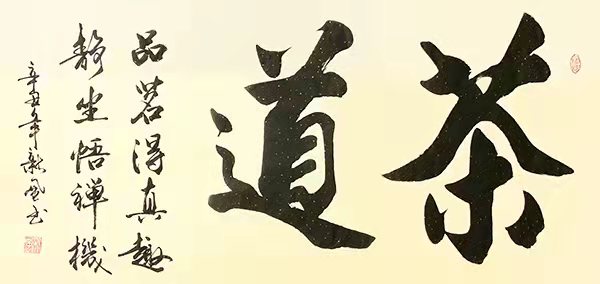 茶道
品茗得真趣
静坐悟禅機
辛丑年新盛书